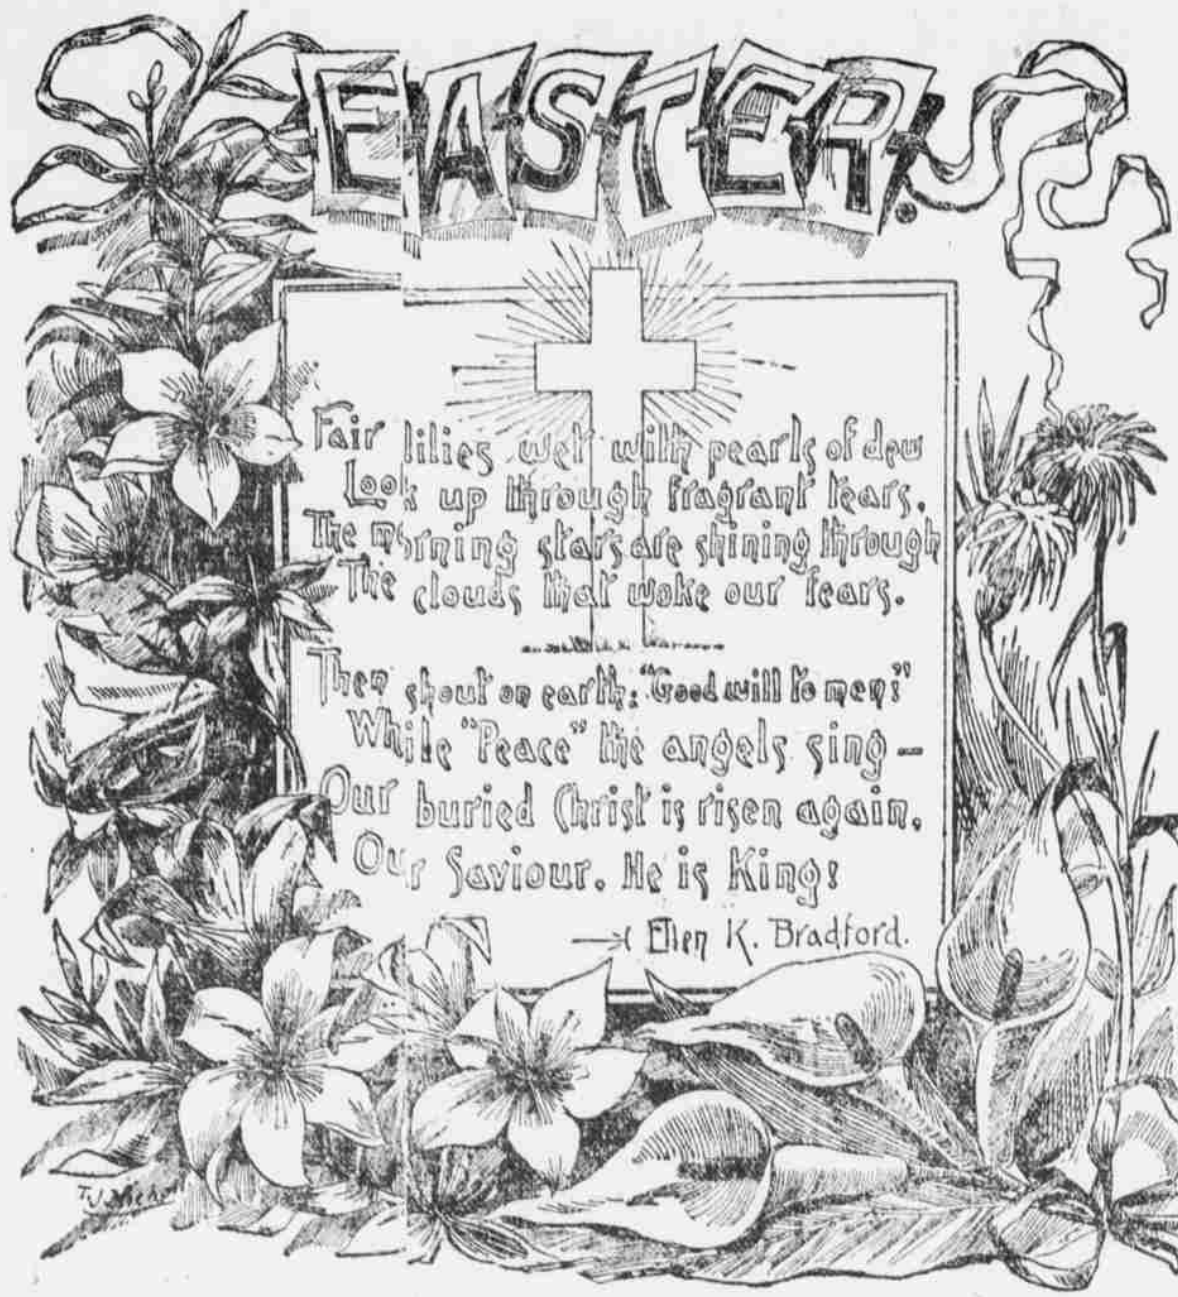 EASTER.
Fair lilies wet with pearls of dew
Look up through fragrant tears,
The morning stars are shining through
The clouds that woke our fears.
Then shout on earth: "Good will to men!"
While "Peace" the angels sing —
Our buried Christ is risen again,
Our Saviour. He is King!
Ellen K. Bradford.
T.J.